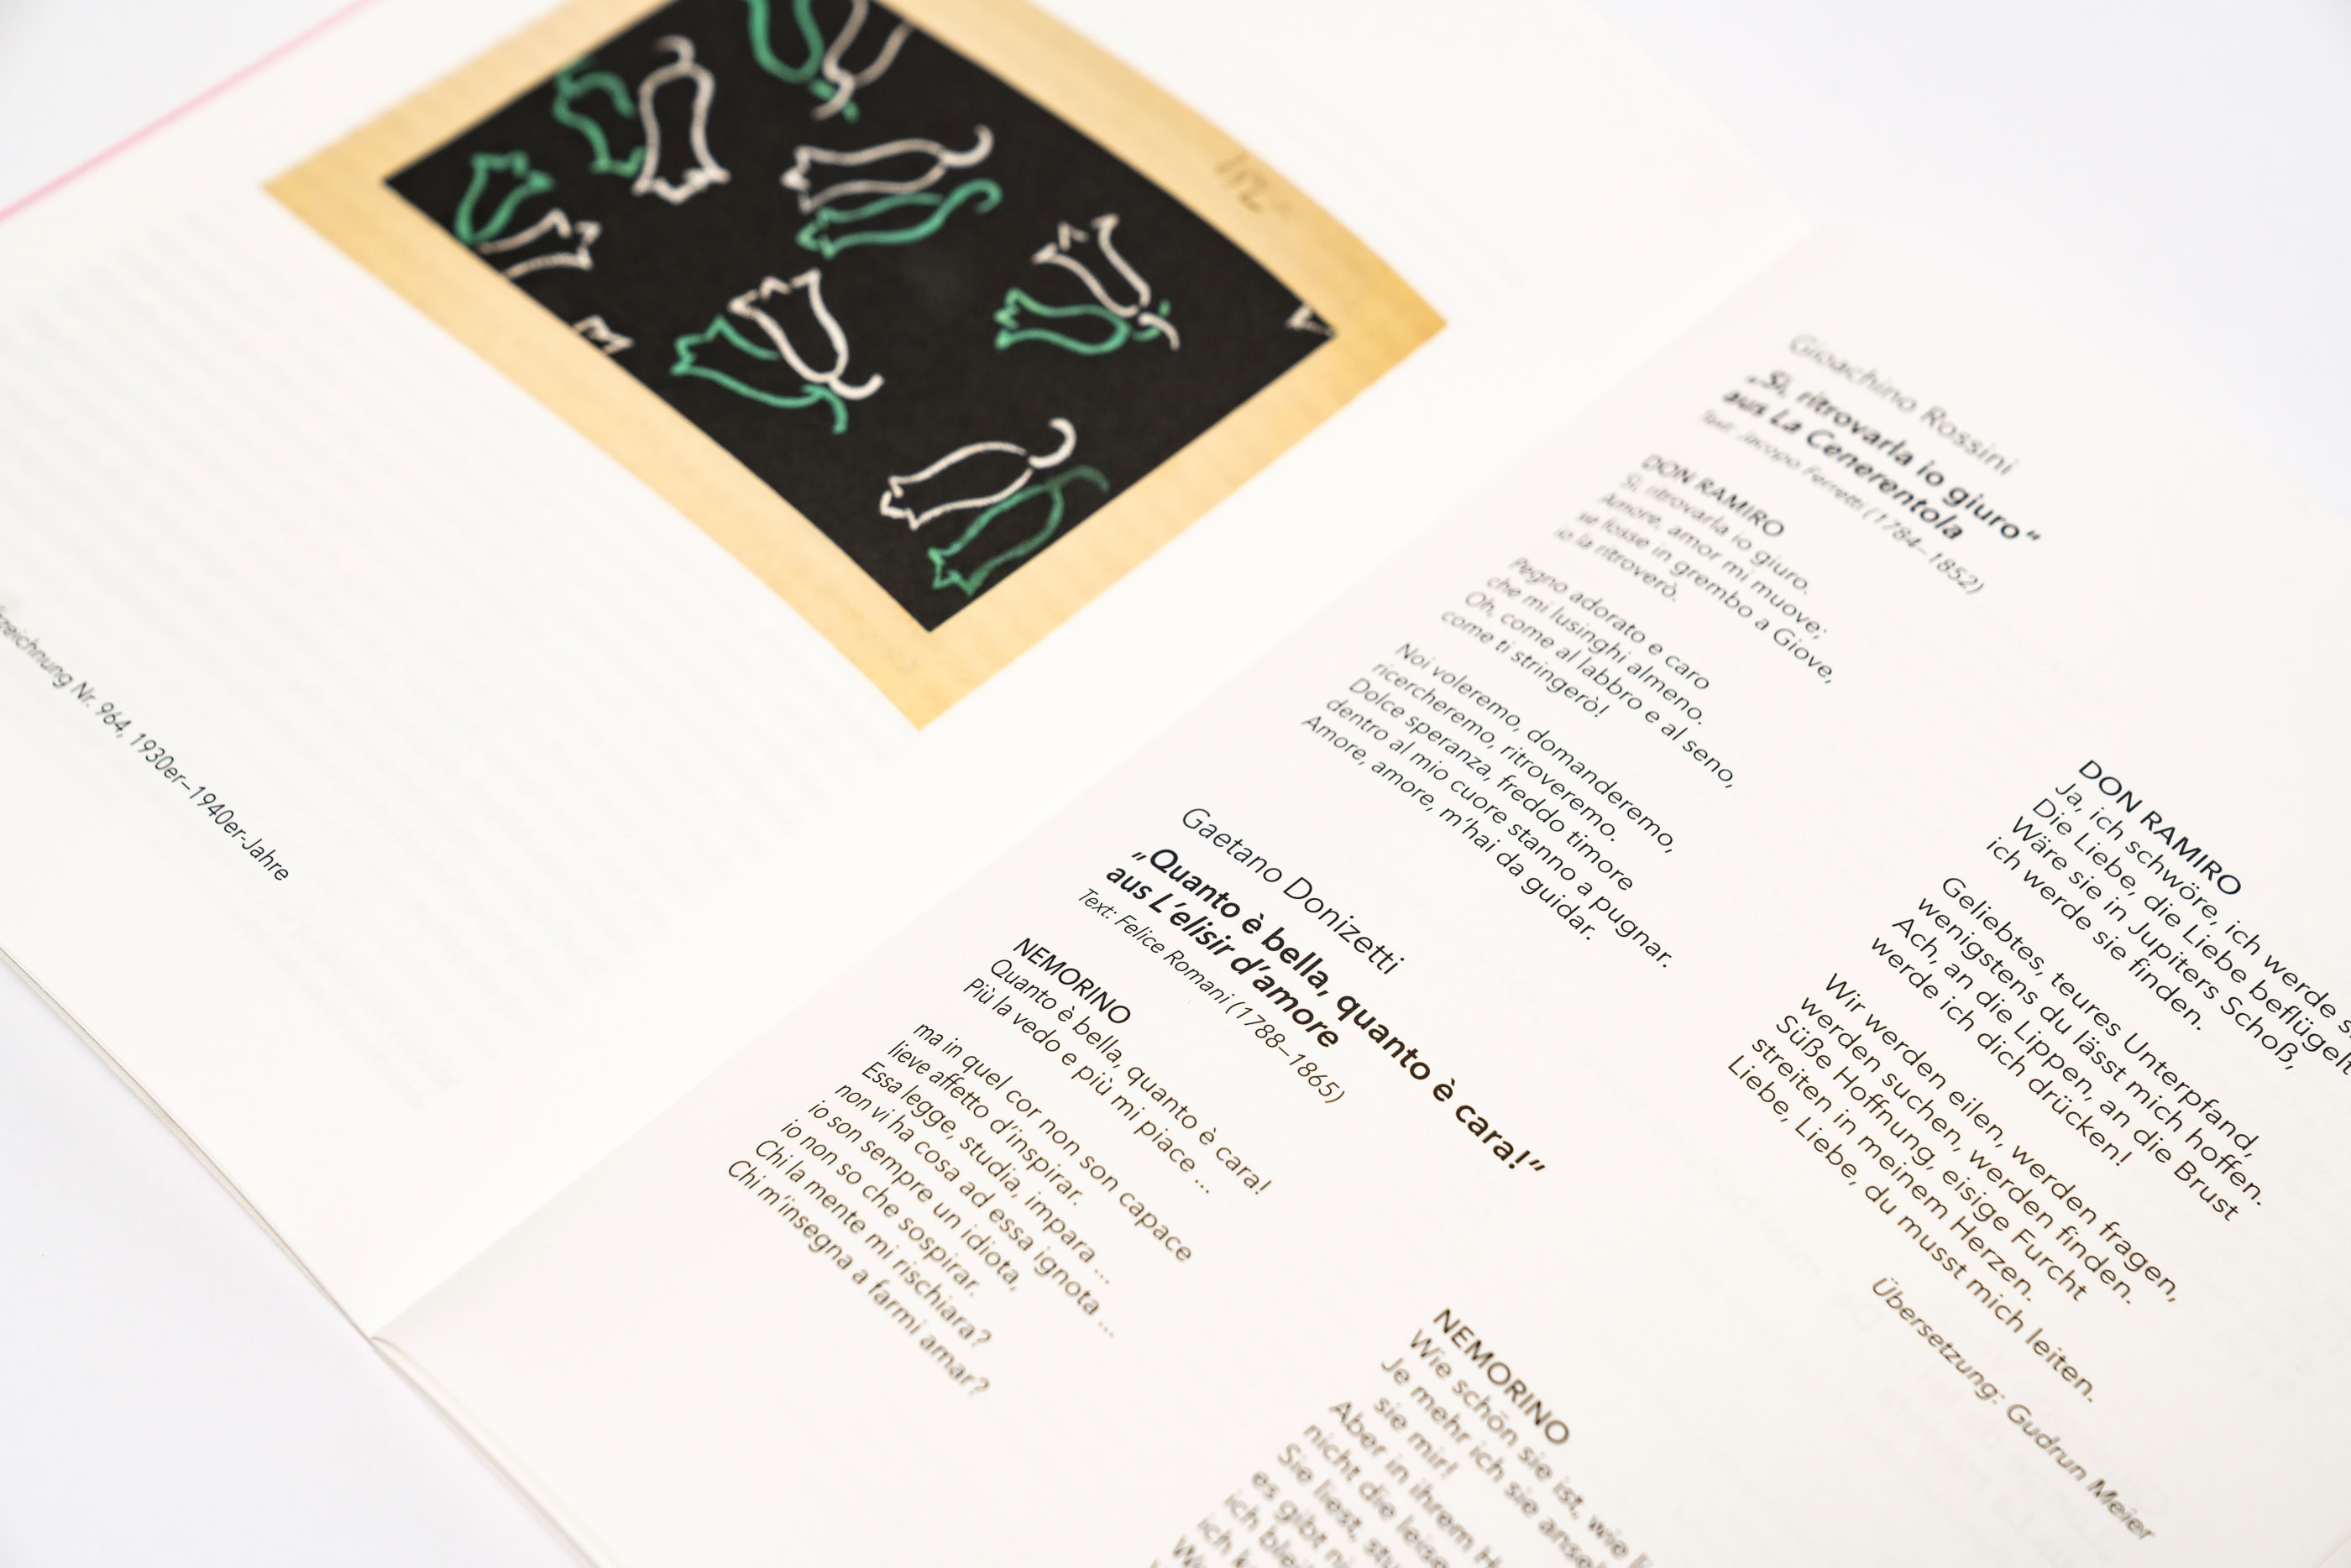 zeichnung Nr. 964, 1930er–1940er-Jahre
Gioachino Rossini
„Sì, ritrovarla io giuro“
aus La Cenerentola
Text: Jacopo Ferretti (1784–1852)
DON RAMIRO
Sì, ritrovarla io giuro.
Amore, amor mi muove;
se fosse in grembo a Giove,
io la ritroverò.
Pegno adorato e caro
che mi lusinghi almeno.
Oh, come al labbro e al seno,
come ti stringerò!
Noi voleremo, domanderemo,
ricercheremo, ritroveremo.
Dolce speranza, freddo timore
dentro al mio cuore stanno a pugnar.
Amore, amore, m'hai da guidar.
DON RAMIRO
Ja, ich schwöre, ich werde
Die Liebe, die Liebe beflügelt
Wäre sie in Jupiters Schoß,
ich werde sie finden.
Geliebtes, teures Unterpfand,
wenigstens du lässt mich hoffen.
Ach, an die Lippen, an die Brust
werde ich dich drücken!
Wir werden eilen, werden fragen,
werden suchen, werden finden.
Süße Hoffnung, eisige Furcht
streiten in meinem Herzen.
Liebe, Liebe, du musst mich leiten.
Übersetzung: Gudrun Meier
Gaetano Donizetti
„Quanto è bella, quanto è cara!“
aus L'elisir d'amore
Text: Felice Romani (1788–1865)
NEMORINO
Quanto è bella, quanto è cara!
Più la vedo e più mi piace ...
ma in quel cor non son capace
lieve affetto d'inspirar.
Essa legge, studia, impara ...
non vi ha cosa ad essa ignota ...
io son sempre un idiota,
io non so che sospirar.
Chi la mente mi rischiara?
Chi m'insegna a farmi amar?
NEMORINO
Wie schön sie ist, wie
Je mehr ich sie
sie mir!
Aber in ihrem
nicht die
Sie liest,
es gibt
ich
ich